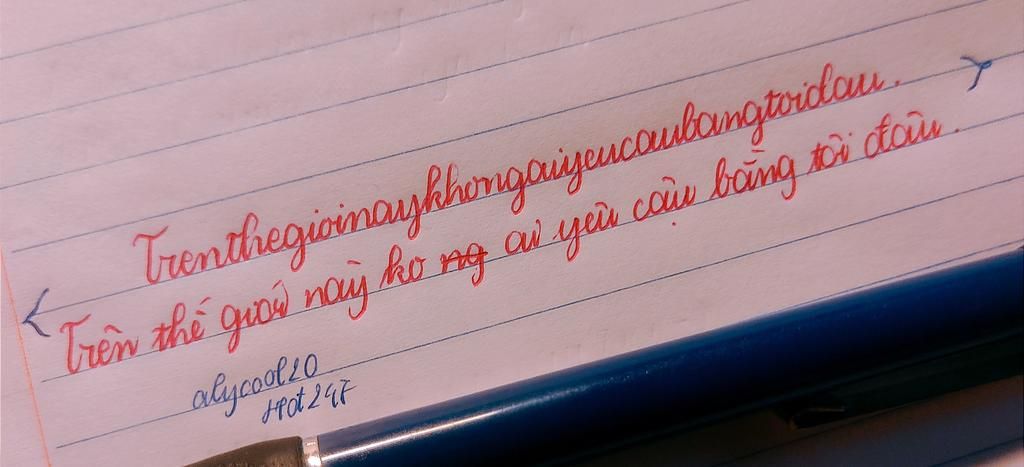 Trenthegioinaykhongaiyeucaubangtoidau.
Trên thế giới này ko ng ai yêu cậu bằng tôi đâu.
alycool20
Hot24F